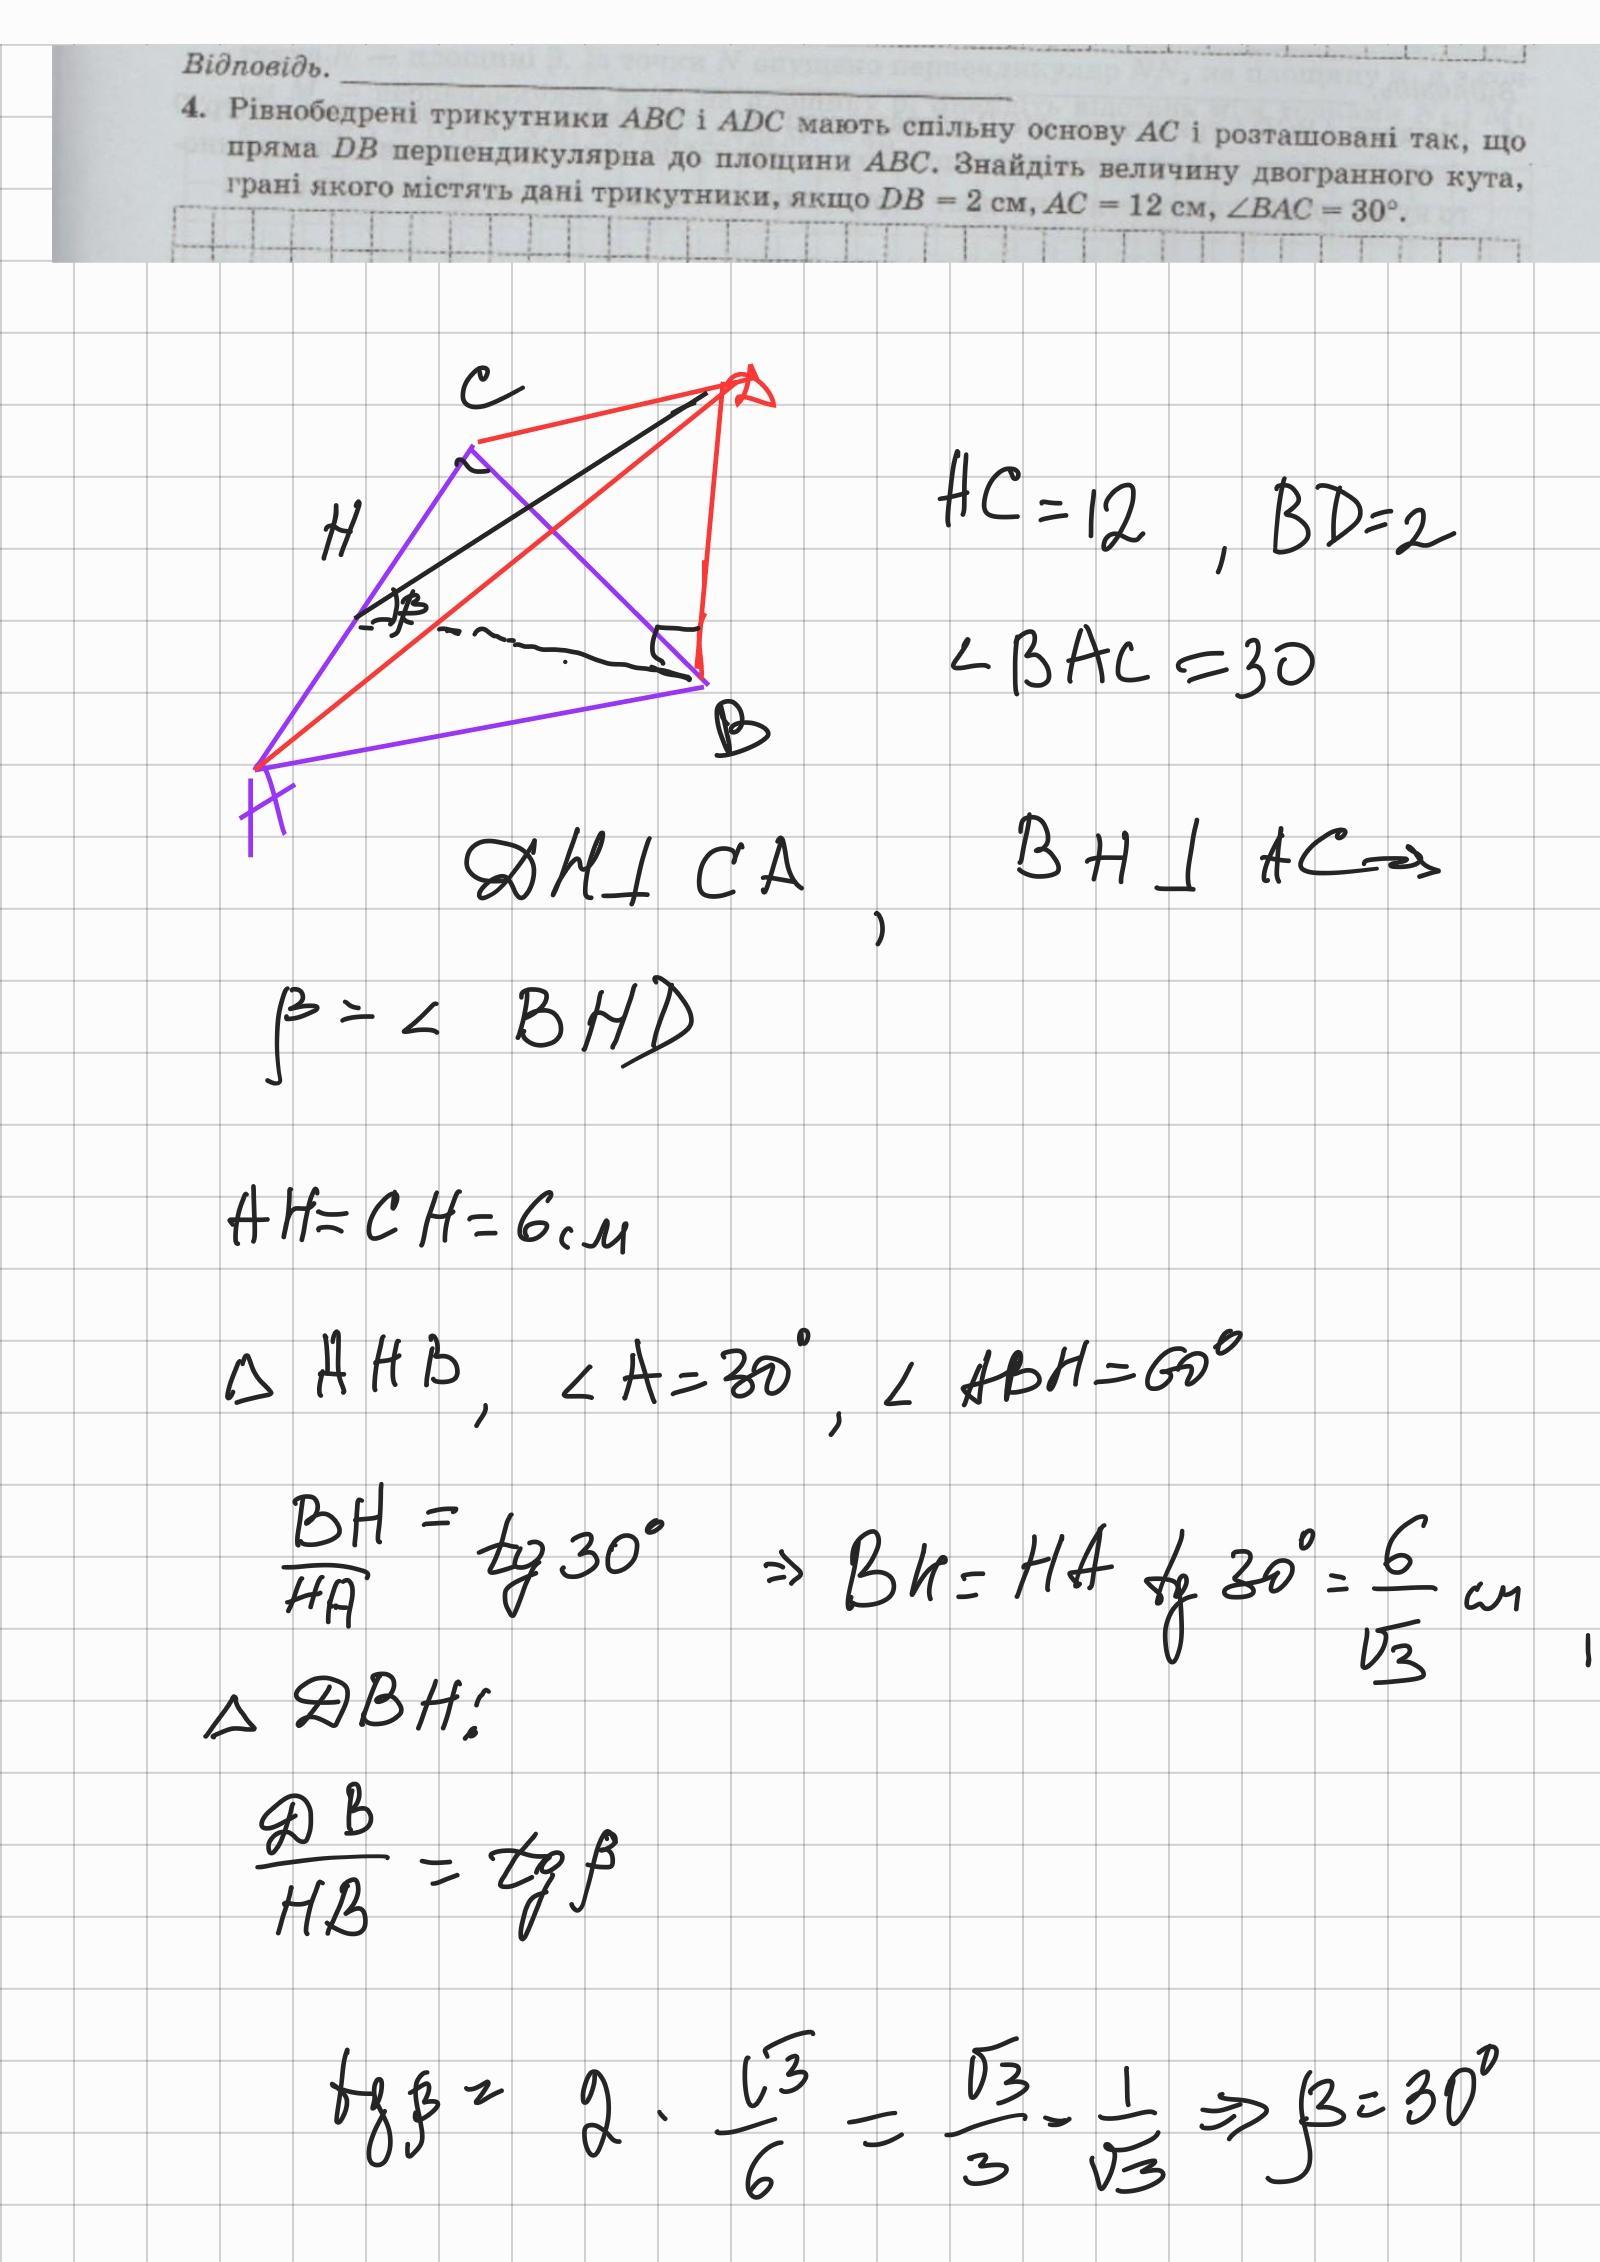 Відповідь.
4. Рівнобедрені трикутники ABC і ADC мають спільну основу AC і розташовані так, що
пряма DB перпендикулярна до площини ABC. Знайдіть величину двогранного кута,
грані якого містять дані трикутники, якщо DB = 2 см, AC = 12 см, ∠BAC = 30°.
C
D
H
β
B
A
AC = 12, BD = 2
∠BAC = 30
DH ⊥ CA, BH ⊥ AC →
β = ∠ BHD
AH = CH = 6 см
△ AHB, ∠A = 30°, ∠ABH = 60°
BH/HA = tg 30° ⇒ BH = HA tg 30° = 6/√3 см,
△ DBH:
DB/HB = tg β
tg β = 2 · √3/6 = √3/3 = 1/√3 ⇒ β = 30°